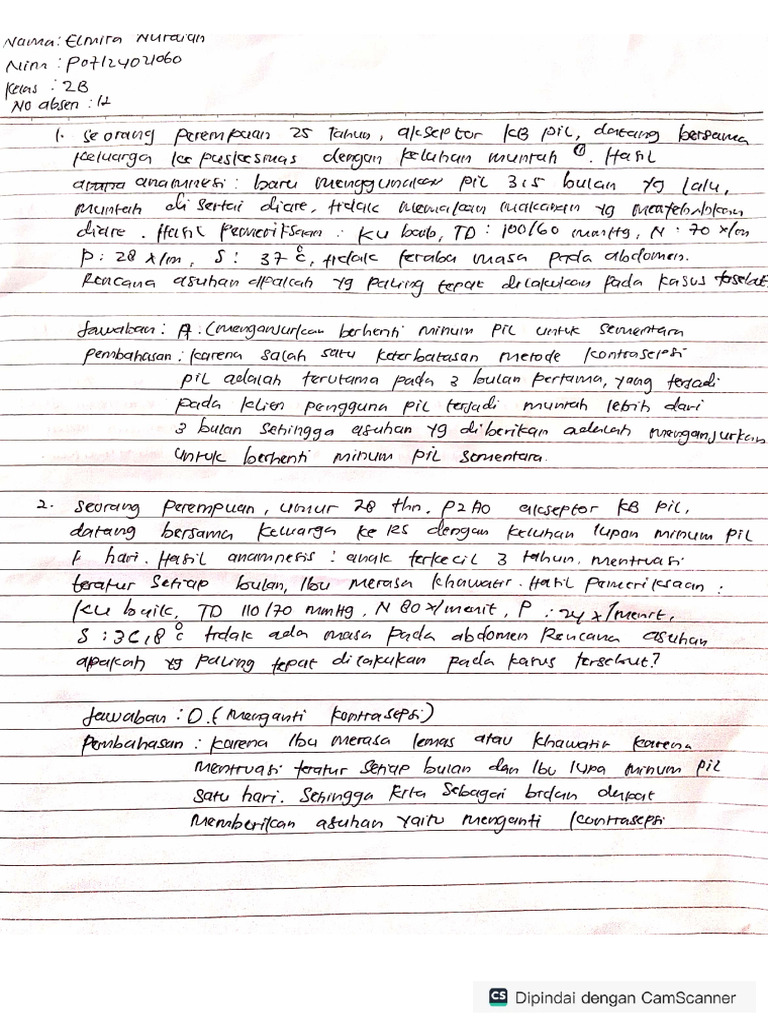 Nama : Elmira Nuraian
Nim : P07124021060
Kelas : 2B
No absen : 12
1. Seorang perempuan 25 tahun, akseptor KB pil, datang bersama
keluarga ke puskesmas dengan keluhan muntah. Hasil
anamnesi : baru menggunakan pil 3,5 bulan yg lalu,
muntah di sertai diare, tidak memakan makanan yg menyebabkan
diare. Hasil pemeriksaan : KU baik, TD : 100/60 mmHg, N : 70 x/m
P : 28 x/m, S : 37°C, tidak teraba masa pada abdomen.
Rencana asuhan apakah yg paling tepat dilakukan pada kasus
Jawaban : A. (menganjurkan berhenti minum pil untuk sementara
Pembahasan : karena salah satu keterbatasan metode kontrasepsi
pil adalah terutama pada 3 bulan pertama, yang terjadi
pada klien pengguna pil terjadi muntah lebih dari
3 bulan sehingga asuhan yg diberikan adalah menganjurkan
untuk berhenti minum pil sementara.
2. Seorang perempuan, umur 28 thn. P2A0 akseptor KB pil,
datang bersama keluarga ke RS dengan keluhan lupan minum pil
1 hari. Hasil anamnesis : anak terkecil 3 tahun, mentruasi
teratur setiap bulan, Ibu merasa khawatir. Hasil pemeriksaan :
KU baik, TD 110/70 mmHg, N 80 x/menit, P : 24 x/menit,
S : 36,8°C tidak ada masa pada abdomen Rencana asuhan
apakah yg paling tepat dilakukan pada kasus tersebut?
Jawaban : D. (Menganti kontrasepsi)
Pembahasan : Karena Ibu merasa lemas atau khawatir karena
mentruasi teratur setiap bulan dan Ibu lupa minum pil
satu hari. Sehingga kita sebagai bidan dapat
memberikan asuhan yaitu menganti kontrasepsi
CS Dipindai dengan CamScanner